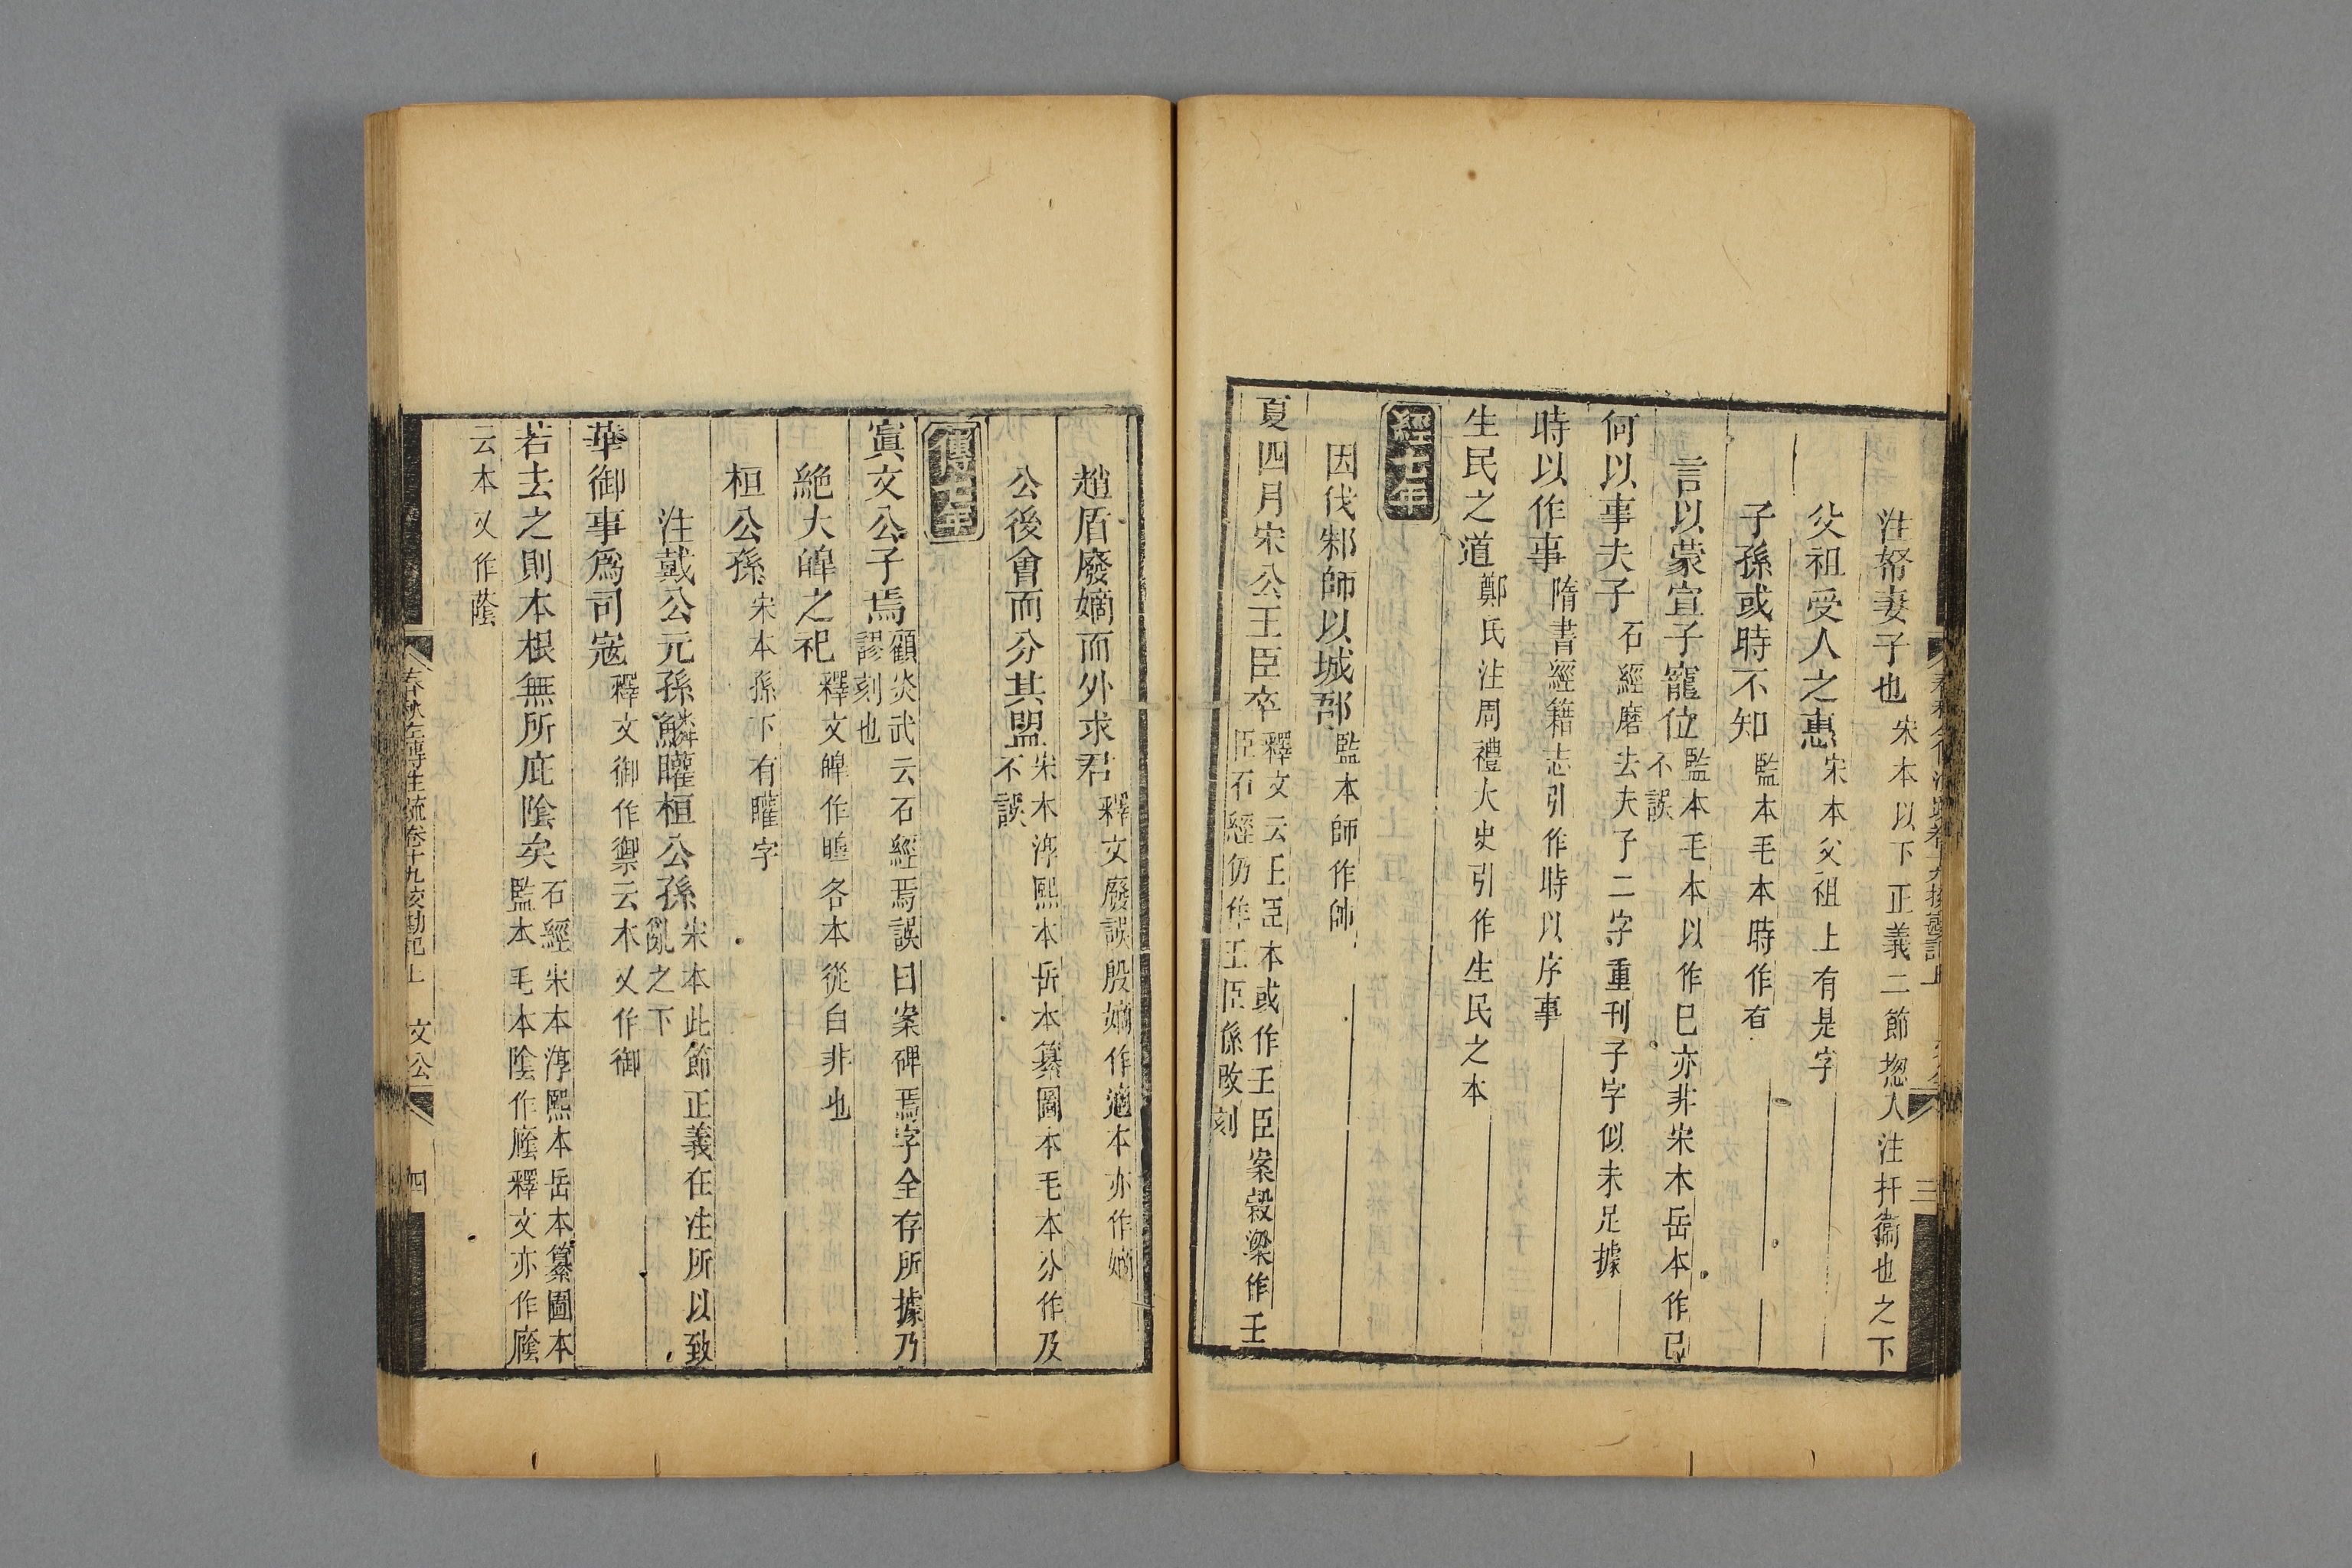 注帑妻子也宋本以下正義二節㧾入注扞衞也之下
父祖受人之惠宋本父祖上有是字
子孫或時不知監本毛本時作有
言以蒙宣子寵位監本毛本以作巳亦非宋本岳本作已不誤
何以事夫子石經磨去夫子二字重刊子字似未足據
時以作事隋書經籍志引作時以序事
生民之道鄭氏注周禮大史引作生民之本
經七年
因伐邾師以城郚監本師作帥
夏四月宋公王臣卒釋文云王臣本或作壬臣案穀梁作壬臣石經仍作王臣係改刻
三
趙盾廢嫡而外求君釋文廢誤殷嫡作適本亦作嫡
公後會而分其盟宋本淳熙本岳本纂圖本毛本分作及不誤
傳七年
寘文公子焉顧炎武云石經焉誤曰案碑焉字全存所據乃謬刻也
絶大皥之祀釋文皥作暤各本從白非也
桓公孫宋本孫下有矔字
注戴公元孫鱗矔桓公孫宋本此節正義在注所以致亂之下
華御事爲司寇釋文御作禦云本又作御
若去之則本根無所庇陰矣石經宋本淳熙本岳本纂圖本監本毛本陰作廕釋文亦作廕
云本又作蔭
春秋左傳注疏卷十九校勘記上 文公 四